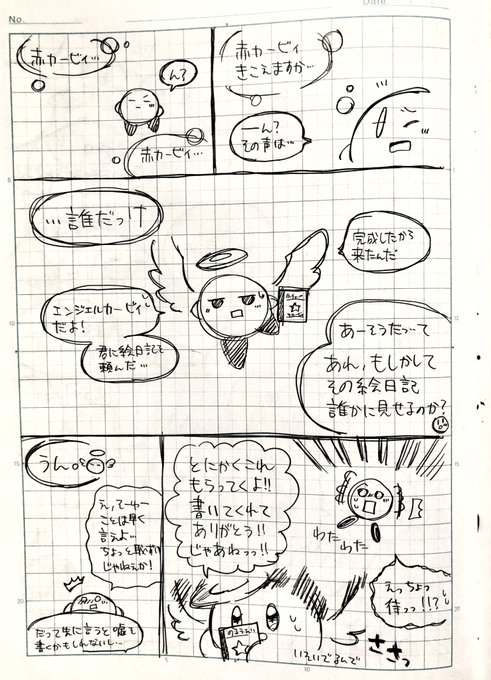 No.
Date
赤カービィ…
ん?
赤カービィ…
赤カービィ
きこえますか…
ーん?
その声は…
…誰だっけ
エンジェルカービィ
だよ!
君に絵日記を
頼んだ…
完成したから
来たんだ
あーそうだっって
あれ,もしかして
その絵日記
誰かに見せるのか?
うん。
え,てーゆー
ことは早く
言えよ…
ちょっと恥ずい
じゃねぇか!
だって先に言うと嘘で
書くかもしれないし…
とにかくこれ
もらってくよ!!
書いてくれて
ありがとう!!
じゃあねっっ!!
わた
わた
えっちょっ
待っっ!!?
ささっ
いそいでるんで